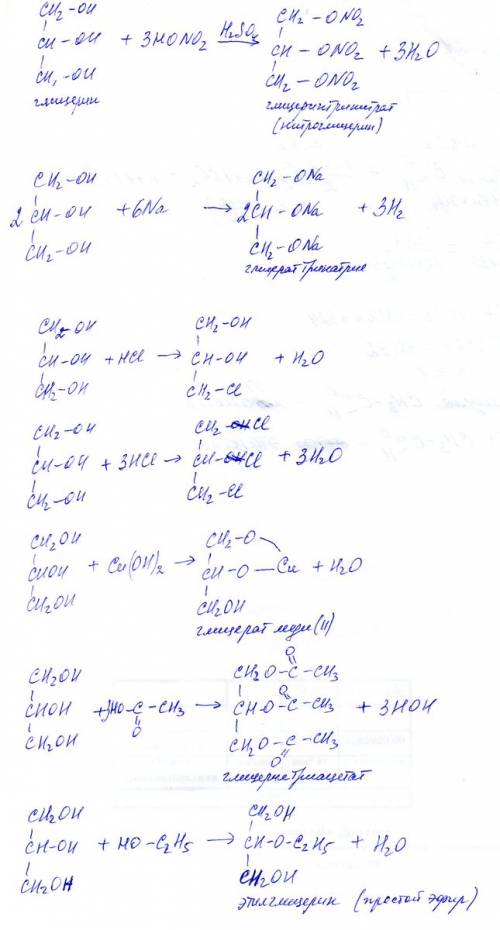 CH₂-OH CH₂-ONO₂
CH-OH + 3HONO₂ H₂SO₄→ CH-ONO₂ + 3H₂O
CH₂-OH CH₂-ONO₂
глицерин глицеринтринитрат
(нитроглицерин)
CH₂-OH CH₂-ONa
2 CH-OH + 6Na → 2CH-ONa + 3H₂
CH₂-OH CH₂-ONa
глицерат тринатрие
CH₂-OH CH₂-OH
CH-OH + HCl → CH-OH + H₂O
CH₂-OH CH₂-Cl
CH₂-OH CH₂-Cl
CH-OH + 3HCl → CH-Cl + 3H₂O
CH₂-OH CH₂-Cl
CH₂OH CH₂-O
CHOH + Cu(OH)₂ → CH-O-Cu + H₂O
CH₂OH CH₂OH
глицерат меди (II)
O
CH₂OH CH₂O-C-CH₃
O
CHOH + 3HO-C-CH₃ → CHO-C-CH₃ + 3HOH
O
CH₂OH CH₂O-C-CH₃
O
глицеринтриацетат
CH₂OH CH₂OH
CH-OH + HO-C₂H₅ → CH-O-C₂H₅ + H₂O
CH₂OH CH₂OH
этилглицерин (простой эфир)